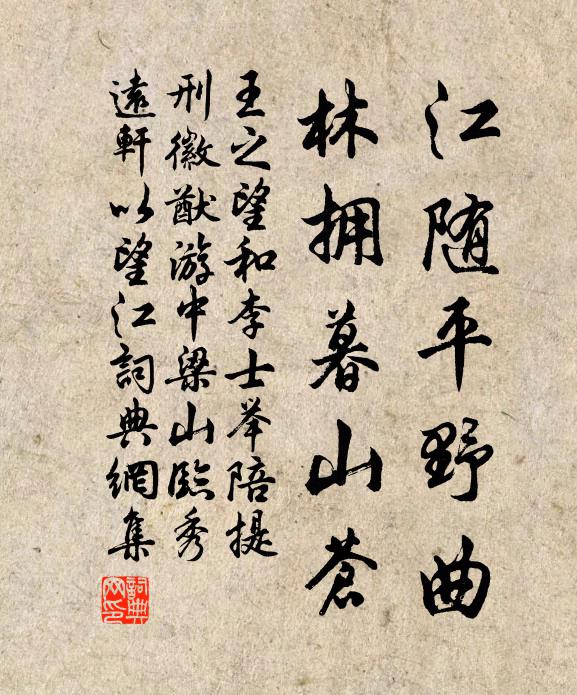 江随平野曲
林拥暮山蒼
王之望和李士举陪提
刑徽猷游中梁山臨秀
遠軒以望江詞典網集
詞典网印